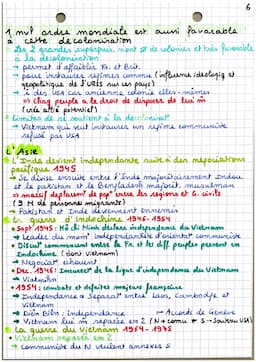 6
1 nvl ordre mondiale est aussi favorable
à cette décolonisation
Les 2 grandes superpuis, n'ont ∅ de colonies et très favorable
à la décolonisation
→ permet d'affaiblir Fr. et Brit.
→ pour instaurer régimes commu (influence idéologiq et
géopolitique de l'URSS sur ces pays)
→ des USA car ancienne colonie elles-mêmes
=> Chaq peuple a le droit de disposer de lui m̂
Limites de se soutient à la décolonisat°
→ Vietnam qui veut instaurer un régime communiste
refusé par USA
L'Asie
L'Inde devient indépendante suite à des négociations
pacifique 1945
→ Se divise ensuite entre l'Inde majoritairement Indou
et le pakistan et le Bengladesh majorit. musulman
→ massif déplacem° de pop° entre les régions et G. civils
(9 M de personnes migrants)
→ Pakistan et Inde deviennent ennemis
La guerre d'Indochine 1946-1954
Sept 1945 : Hô Chi Minh déclare indépendance du Vietnam
→ Leader du mom° indépendantiste d'orientat° communiste
Discut° commencent entre la Fr. et les diff peuples présent en
Indochine (dont Vietnam)
→ Négociat° échouent
Dec. 1946 : du Vietnam
→ Vietminh
1954 : combats et défaites majeure française
→ Indépendance et Séparat° entre Laos, Cambodge et
Vietnam
→ Diên Biên : indépendance → Accords de Genève
→ Vietnam lui m̂ séparée en 2 (N → commu & S → Soutien USA)
La guerre du Vietnam 1964-1975
Vietnam séparée en 2
→ communiste du N veulent annexés S